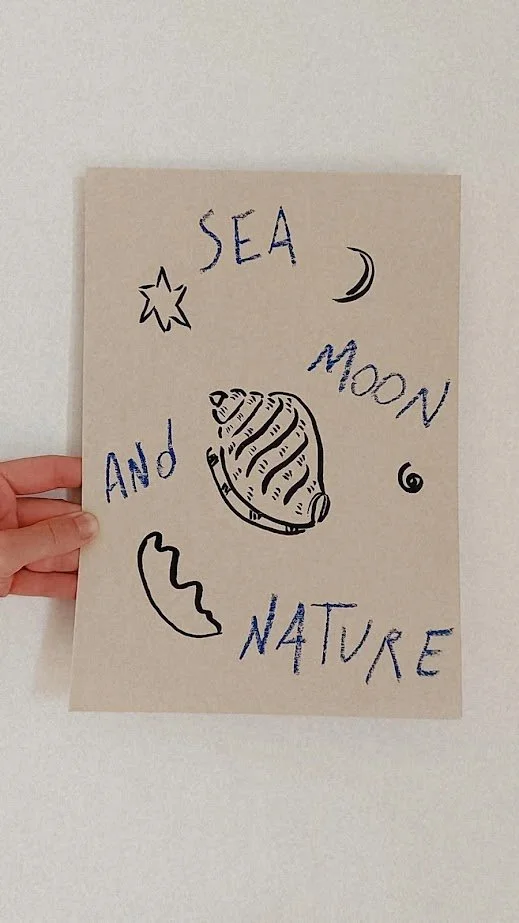 SEA
MOON
ANd
NATURE